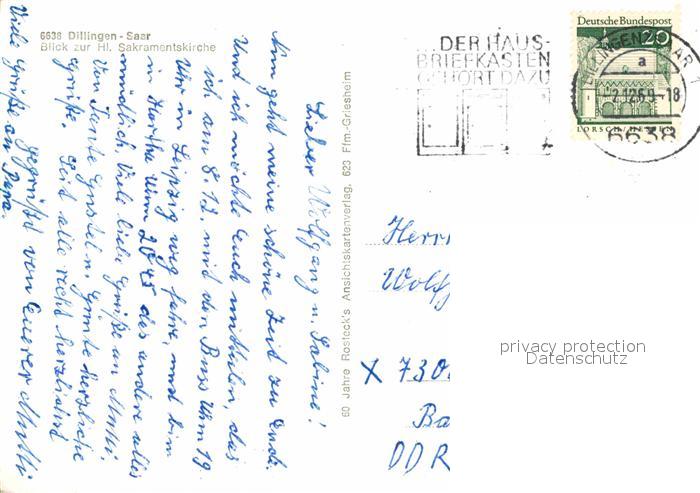 6638 Dillingen - Saar
Blick zur Hl. Sakramentskirche
Lieber Wolfgang u. Sabine!
Nun geht meine schöne Zeit zu Ende.
Und ich möchte Euch mitteilen, das
ich am 8.12. mit den Buss Uhm 19
Uhr in Leipzig weg fahre, und bin
in Hartha Uhm 20 45 das andere alles
mündlich. Viele liebe Grüße an Mutti.
Von Tante Gustel u. Günter herzliche
Grüße. Seit alle recht herzlichst
gegrüßt von Euerer Mutti.
Viele Grüße an Papa.
60 Jahre Rosteck's Ansichtskartenverlag, 623 Ffm.-Griesheim
...DER HAUS-
BRIEFKASTEN
GEHÖRT DAZU
Deutsche Bundespost
20
LORSCH/HESSEN
DILLINGEN, SAAR
a
-2.12.69-18
6638
Herrn
Wolfg
X 730
Ba
DDR
privacy protection
Datenschutz